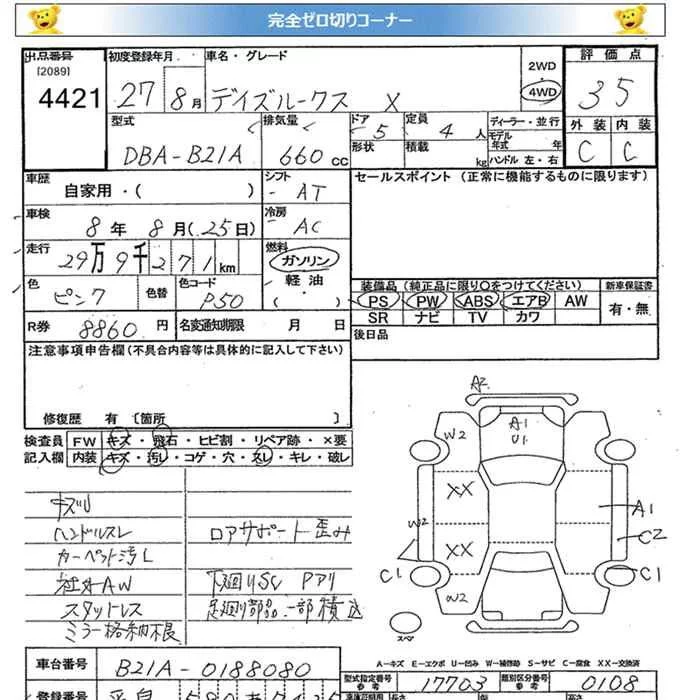 完全ゼロ切りコーナー
出品番号 初度登録年月 車名・グレード 2WD ・ 4WD 評価点
[2089]
4421 27 8月 デイズルークス X 35
型式 排気量 ドア 5 定員 4 人 ディーラー・並行 外装 内装
DBA-B21A 660 cc 形状 積載 kg モデル 年式 年 C C
ハンドル 左・右
車歴 シフト セールスポイント (正常に機能するものに限ります)
自家用・( ) AT
車検 冷房
8年 8月(25日) AC
走行 燃料
29万9千271km ガソリン
色 色替 色コード 軽油・
ピンク P50 ( )
装備品 (純正品に限り○をつけてください) 新車保証書
PS PW ABS エアB AW 有・無
SR ナビ TV カワ
R券 8860円 名変通知期限 月 日 後日品
注意事項申告欄(不具合内容等は具体的に記入して下さい)
修復歴 有 〔箇所 〕
検査員 FW キズ・飛石・ヒビ割・リペア跡・×要
記入欄 内装 キズ・汚レ・コゲ・穴・スレ・キレ・破レ
キズU
ハンドルスレ ロアサポート歪み
カーペット汚レ
社外AW 下廻りSC Pアリ
スタットレス 足廻り部品一部積込
ミラー格納不良
A2
W2 A1
U1
XX
W2 A1
XX C2
C1 C1
W2
スペア
A-キズ E-エクボ U-凹み W-補修跡 S-サビ C-腐食 XX-交換済
車台番号 B21A-0188080 型式指定番号 参考 17703 類別区分番号 参考 0108
登録番号